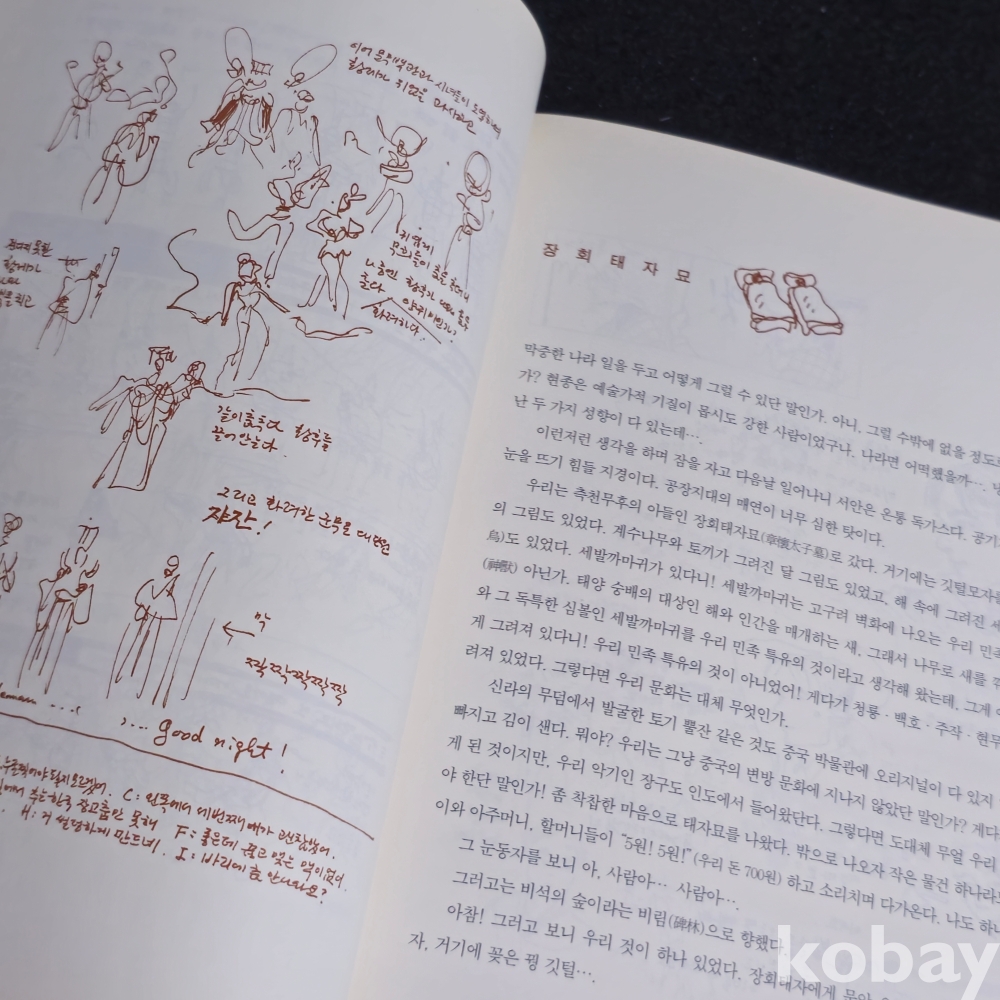 이어 묵객백관과 시녀들이 도열하여
황제가 귀엽게
무희들이 춤을 춘다
나중엔 황후가
춘다 양귀비인가?
화려하다.
황제가
같이 춤추다 황후를
끌어 안는다.
그리고 화려한 군무로 대단원
쟈잔!
막
짝짝짝짝짝
)... good night!
C: 왼쪽에서 네번째 배가 괜찮았어.
추는 한국 장고춤만 못해 F: 좋은데 끌고 있는 맥이 없어.
H: 거 썰렁하게 만드네. I: 바리에 안나와요?
장 회 태 자 묘
막중한 나라 일을 두고 어떻게 그럴 수 있단 말인가. 아니, 그럴 수밖에 없을 정도로
가? 현종은 예술가적 기질이 몹시도 강한 사람이었구나. 나라면 어떡했을까…. 나
난 두 가지 성향이 다 있는데….
이런저런 생각을 하며 잠을 자고 다음날 일어나니 서안은 온통 독가스다. 공기
눈을 뜨기 힘들 지경이다. 공장지대의 매연이 너무 심한 탓이다.
우리는 측천무후의 아들인 장회태자묘(章懷太子墓)로 갔다. 거기에는 깃털모자를
의 그림도 있었다. 계수나무와 토끼가 그려진 달 그림도 있었고, 해 속에 그려진 세
鳥)도 있었다. 세발까마귀가 있다니! 세발까마귀는 고구려 벽화에 나오는 우리 민족
(神獸) 아닌가. 태양 숭배의 대상인 해와 인간을 매개하는 새, 그래서 나무로 새를 깎
와 그 독특한 심볼인 세발까마귀를 우리 민족 특유의 것이라고 생각해 왔는데, 그게 여
게 그려져 있다니! 우리 민족 특유의 것이 아니었어! 게다가 청룡·백호·주작·현무
려져 있었다. 그렇다면 우리 문화는 대체 무엇인가.
신라의 무덤에서 발굴한 토기 뿔잔 같은 것도 중국 박물관에 오리지널이 다 있지
빠지고 김이 샌다. 뭐야? 우리는 그냥 중국의 변방 문화에 지나지 않았단 말인가? 게다
게 된 것이지만, 우리 악기인 장구도 인도에서 들어왔단다. 그렇다면 도대체 무얼 우리
야 한단 말인가! 좀 착잡한 마음으로 태자묘를 나왔다. 밖으로 나오자 작은 물건 하나라도
이와 아주머니, 할머니들이 “5원! 5원!”(우리 돈 700원) 하고 소리치며 다가온다. 나도 하나
그 눈동자를 보니 아, 사람아… 사람아….
그러고는 비석의 숲이라는 비림(碑林)으로 향했다.
아참! 그러고 보니 우리 것이 하나 있었다. 장회태자에게
자, 거기에 꽂은 꿩 깃털….
kobay